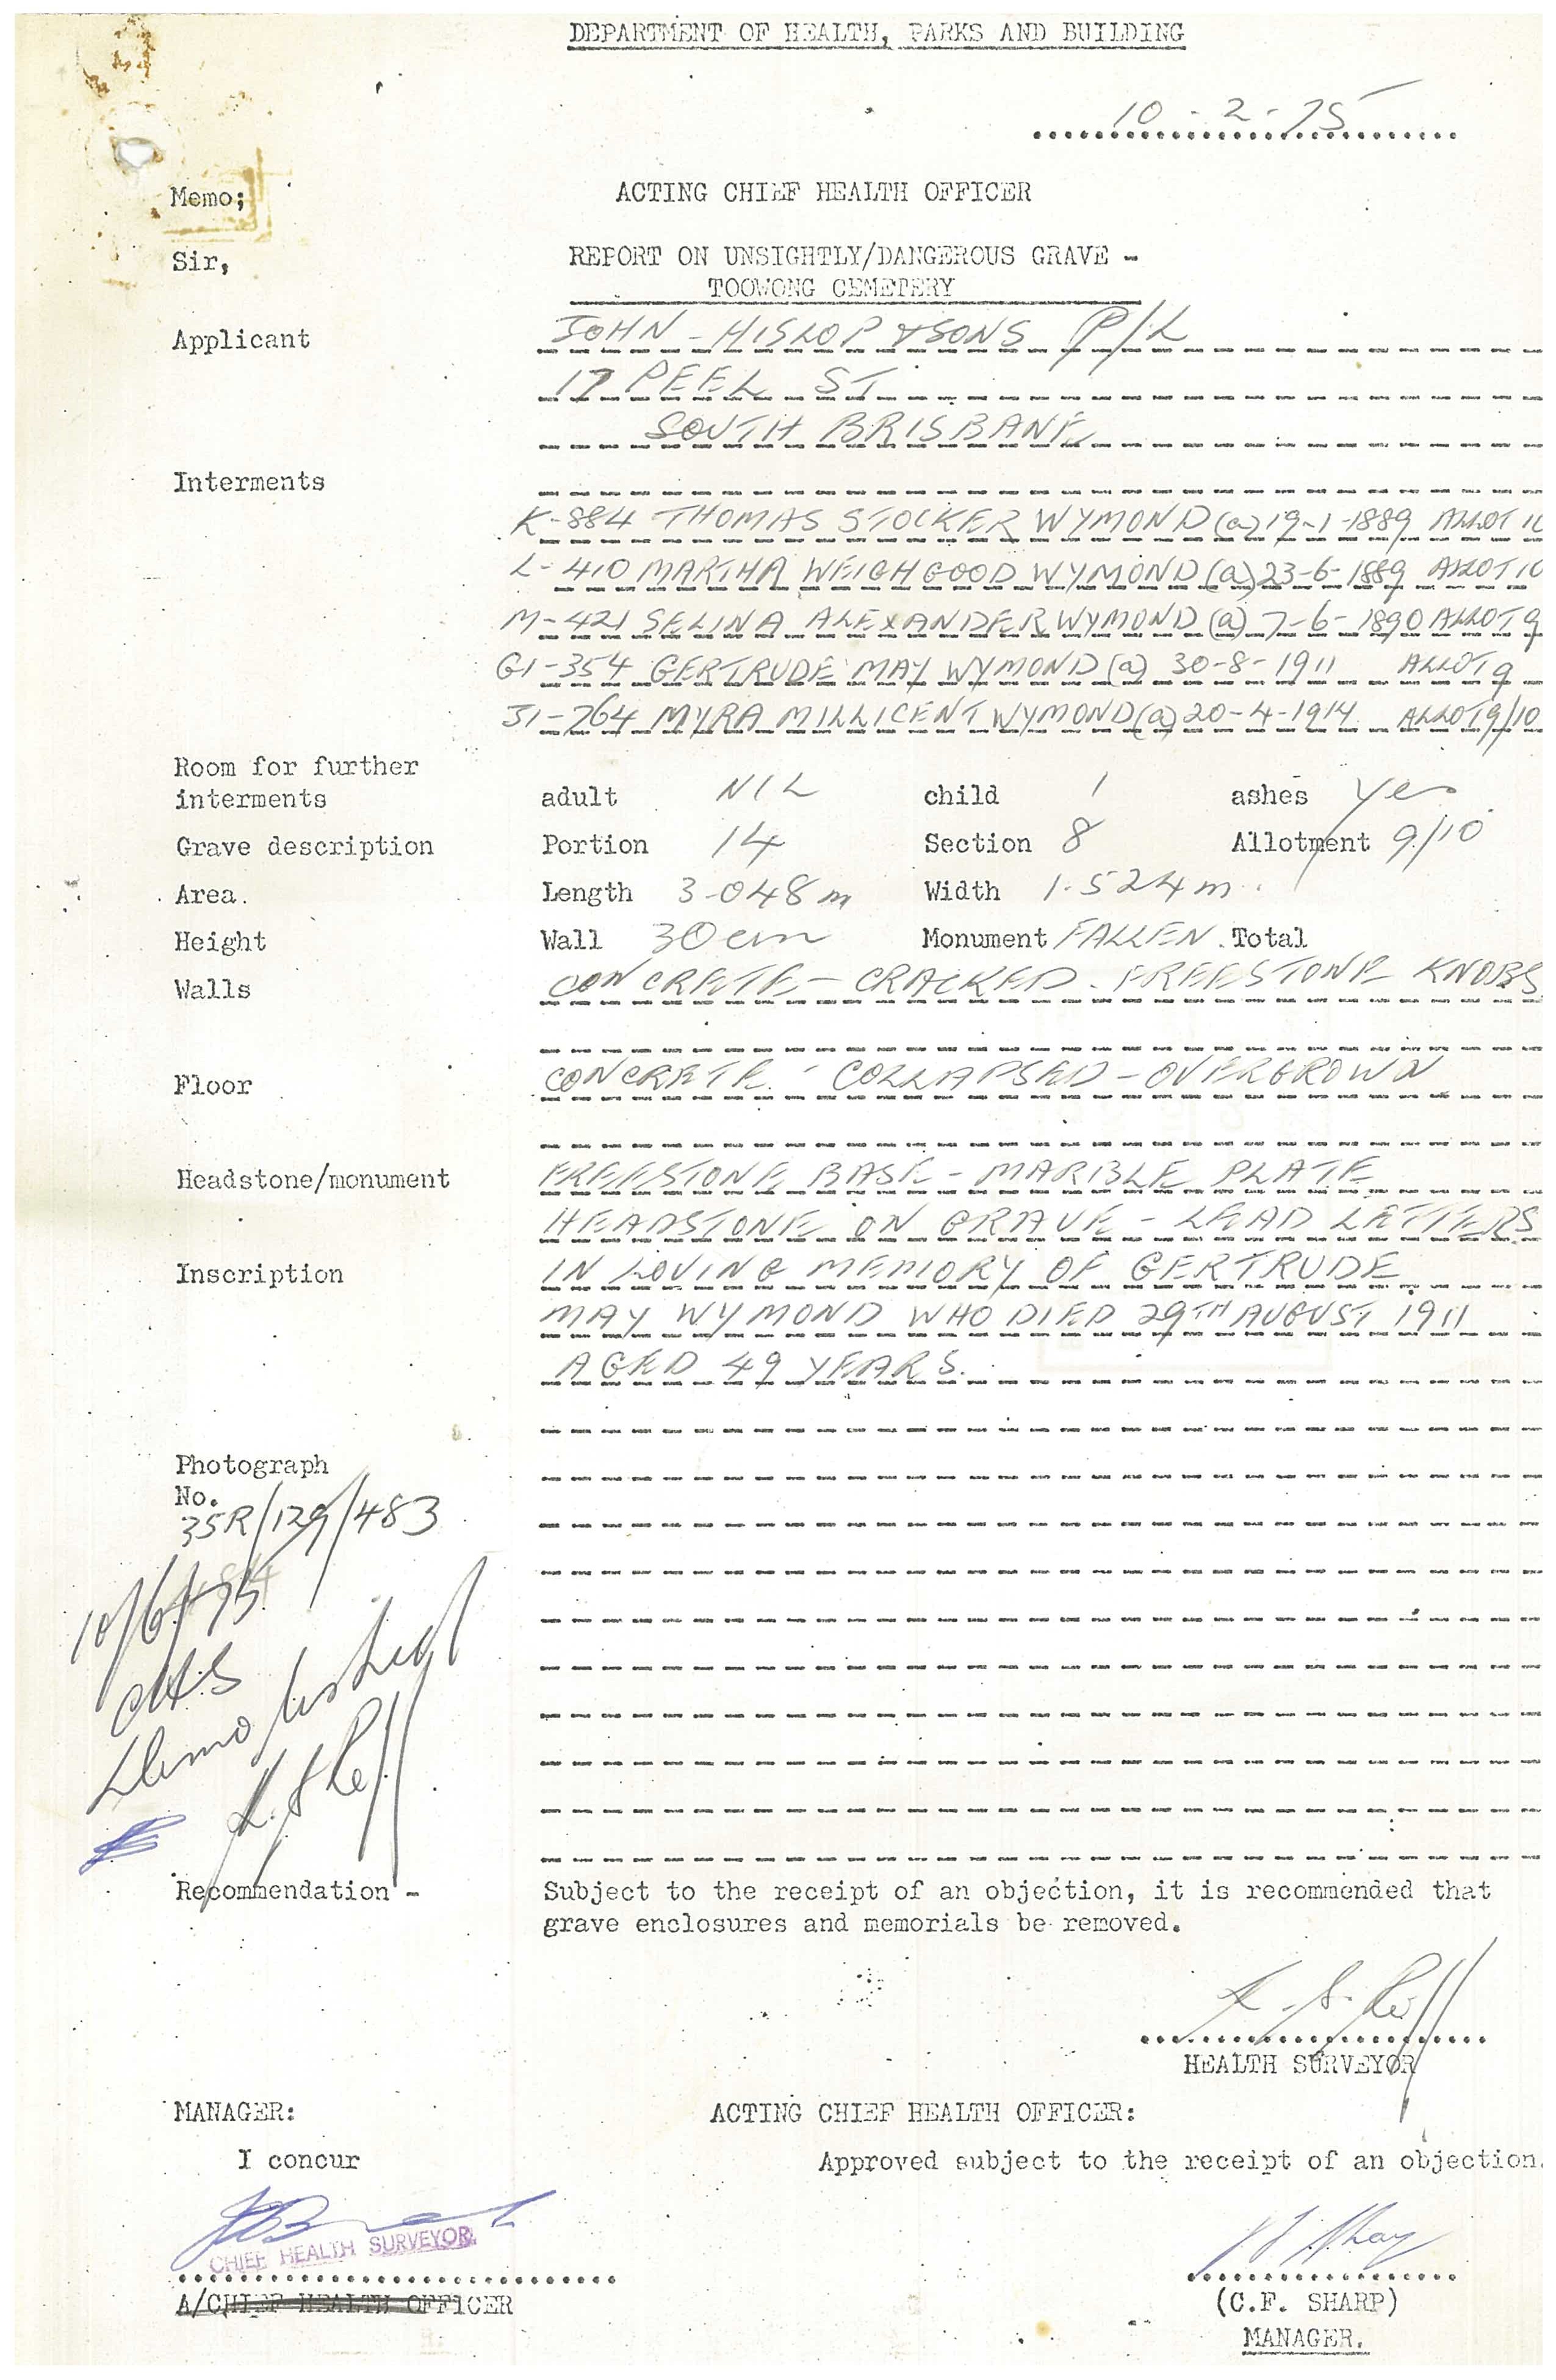 DEPARTMENT OF HEALTH, PARKS AND BUILDING
10-2-75
Memo; ACTING CHIEF HEALTH OFFICER
Sir, REPORT ON UNSIGHTLY/DANGEROUS GRAVE -
TOOWONG CEMETERY
Applicant JOHN - HISLOP & SONS P/L
17 PEEL ST
SOUTH BRISBANE
Interments
K-884 THOMAS STOCKER WYMOND (a) 19-1-1889 ALLOT 10
L-410 MARTHA WEIGHGOOD WYMOND (a) 23-6-1889 ALLOT 10
M-421 SELINA ALEXANDER WYMOND (a) 7-6-1890 ALLOT 9
G1-354 GERTRUDE MAY WYMOND (a) 30-8-1911 ALLOT 9
J1-764 MYRA MILLICENT WYMOND (a) 20-4-1914 ALLOT 9/10
Room for further
interments adult NIL child 1 ashes Yes
Grave description Portion 14 Section 8 Allotment 9/10
Area. Length 3-048 m Width 1.524 m.
Height Wall 30 cm Monument FALLEN. Total
Walls CONCRETE - CRACKED - FREESTONE KNOBS
Floor CONCRETE - COLLAPSED - OVERGROWN
Headstone/monument FREESTONE BASE - MARBLE PLATE
HEADSTONE ON GRAVE - LEAD LETTERS
Inscription IN LOVING MEMORY OF GERTRUDE
MAY WYMOND WHO DIED 29TH AUGUST 1911
AGED 49 YEARS.
Photograph
No.
35R/129/483
484
10/6/75
CHS
Recommendation - Subject to the receipt of an objection, it is recommended that
grave enclosures and memorials be removed.
HEALTH SURVEYOR
MANAGER: ACTING CHIEF HEALTH OFFICER:
I concur Approved subject to the receipt of an objection.
CHIEF HEALTH SURVEYOR
A/CHIEF HEALTH OFFICER (C.F. SHARP)
MANAGER.